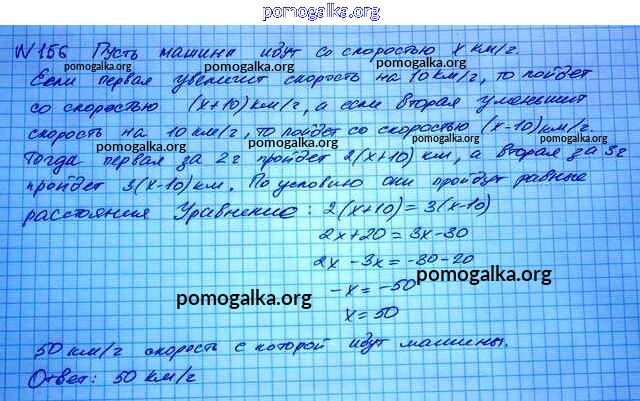 pomogalka.org
N 156 Пусть машини идут со скоростью х км/г.
Если первая увеличит скорость на 10 км/г, то пойдет
со скоростью (х+10) км/г, а если вторая уменьшит
скорость на 10 км/г, то пойдет со скоростью (х-10) км/г.
Тогда первая за 2г пройдет 2(х+10) км, а вторая за 3г
пройдет 3(х-10) км. По условию они пройдут равные
расстояния Уравнение: 2(х+10) = 3(х-10)
2х+20 = 3х-30
2х - 3х = -30-20
-х = -50
х = 50
50 км/г скорость с которой идут машины.
Ответ: 50 км/г
pomogalka.org
pomogalka.org
pomogalka.org
pomogalka.org
pomogalka.org
pomogalka.org
pomogalka.org
pomogalka.org
pomogalka.org
pomogalka.org
pomogalka.org